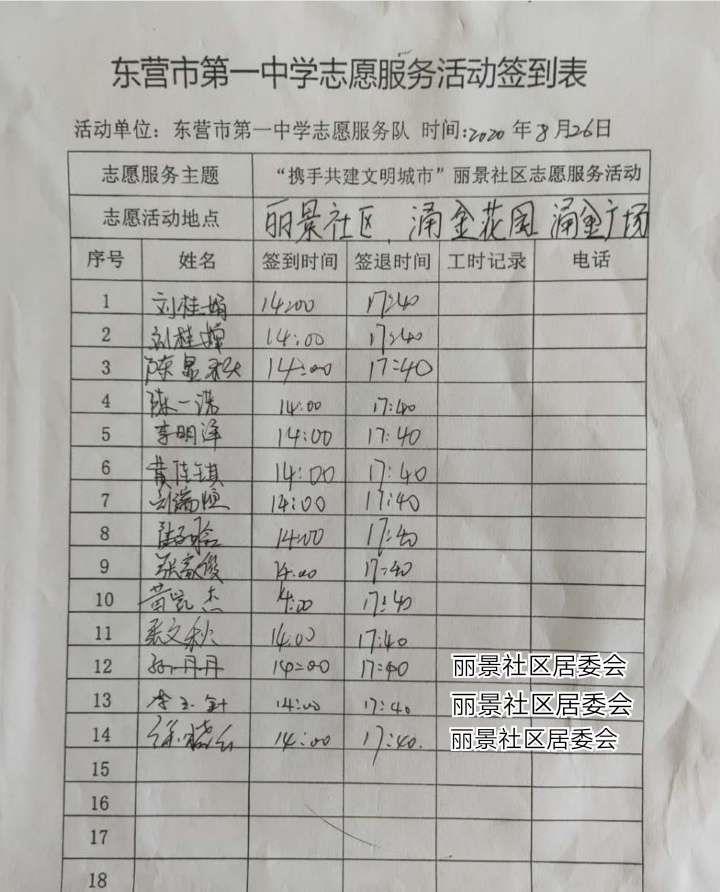 东营市第一中学志愿服务活动签到表
活动单位：东营市第一中学志愿服务队 时间:2020 年 8 月 26 日
志愿服务主题 “携手共建文明城市”丽景社区志愿服务活动
志愿活动地点 丽景社区、涌金花园 涌金广场
序号 姓名 签到时间 签退时间 工时记录 电话
1 刘桂娟 14:00 17:40
2 刘桂 14:00 17:40
3 陈显 14:00 17:40
4 陈一 14:00 17:40
5 李明泽 14:00 17:40
6 黄佳琪 14:00 17:40
7 14:00 17:40
8 14:00 17:40
9 张家俊 14:00 17:40
10 黄凯杰 14:00 17:40
11 张文秋 14:00 17:40
12 孙丹丹 14:00 17:40 丽景社区居委会
13 李玉 14:00 17:40 丽景社区居委会
14 徐晓 14:00 17:40. 丽景社区居委会
15
16
17
18